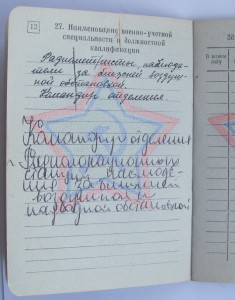 12
27. Наименование военно-учетной
специальности и должностной
квалификации
Радиометристы, наблюда-
тели за ближней воздуш-
ной обстановкой.
Командир отделения
Командир отделения
Радиолокационных
станций наблюде-
ния за ближней
воздушной и
надводной обстановкой
28.